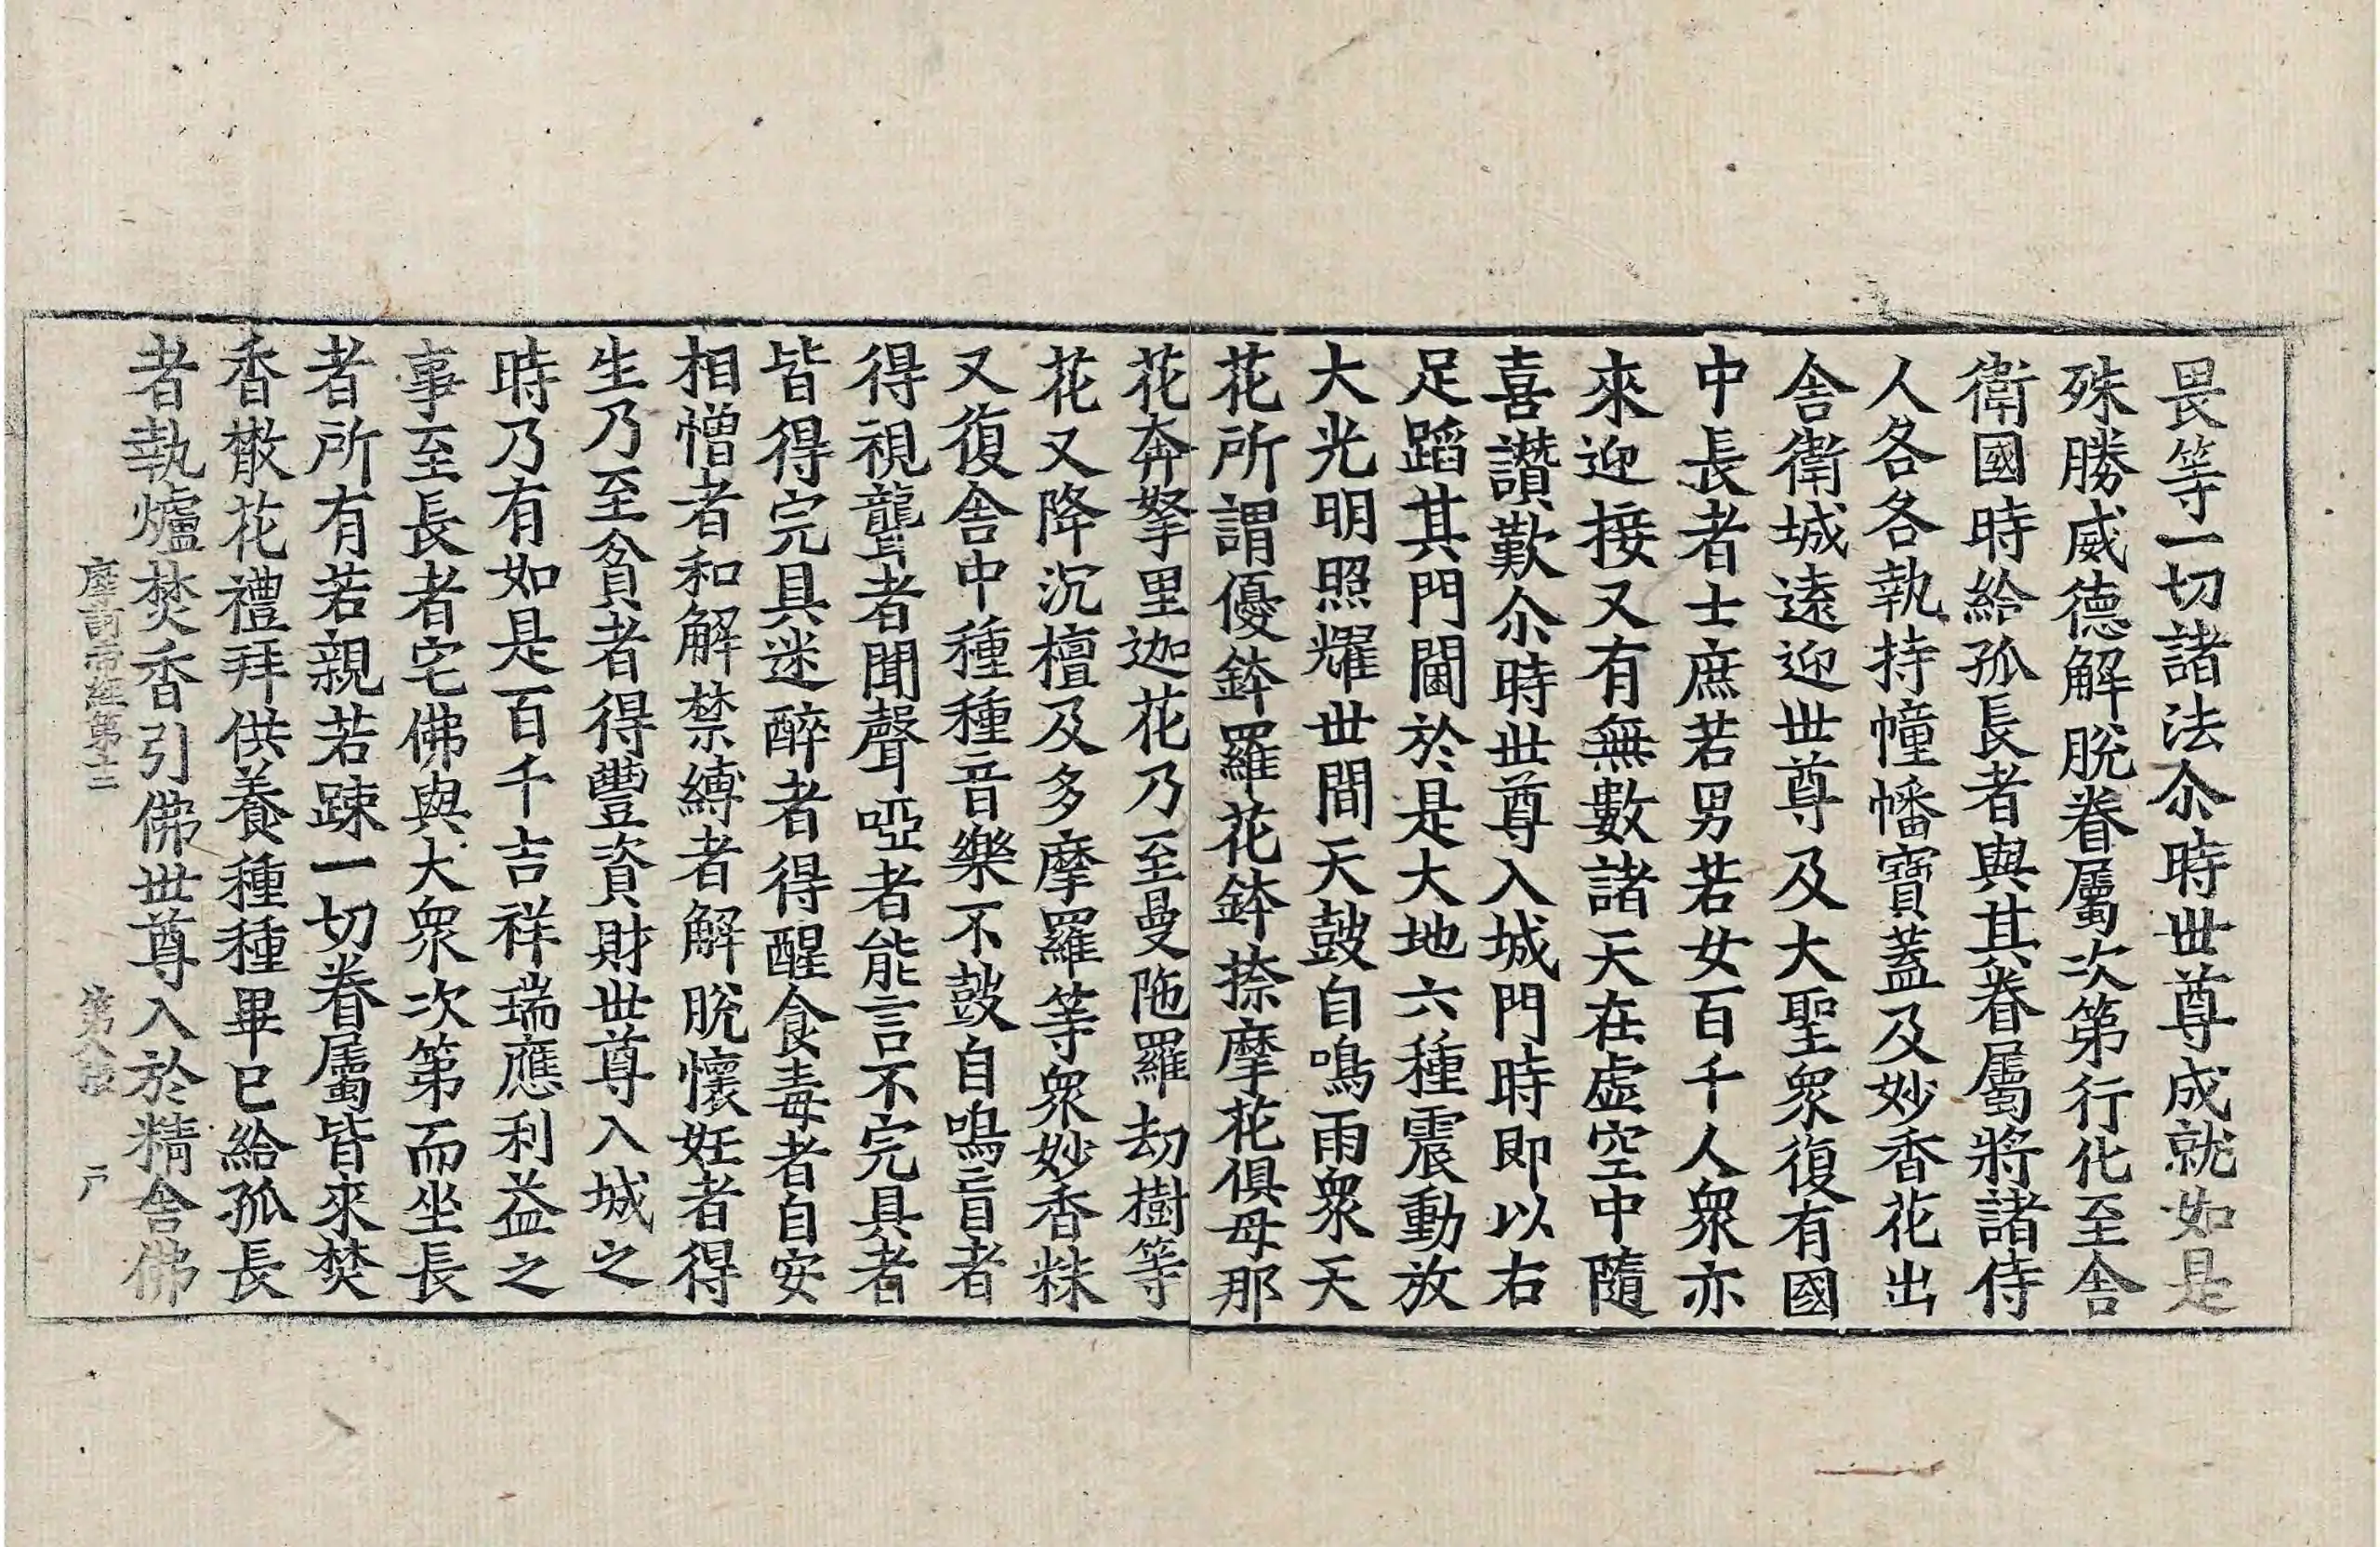 畏等一切諸法尒時世尊成就如是
殊勝威德解脫眷屬次第行化至舍
衛國時給孤長者與其眷屬將諸侍
人各各執持幢幡寶蓋及妙香花出
舍衛城遠迎世尊及大聖衆復有國
中長者士庶若男若女百千人衆亦
來迎接又有無數諸天在虛空中隨
喜讚歎尒時世尊入城門時即以右
足蹈其門閫於是大地六種震動放
大光明照耀世間天鼓自鳴雨衆天
花所謂優鉢羅花鉢捺摩花俱母那
花奔拏里迦花乃至曼陁羅劫樹等
花又降沉檀及多摩羅等衆妙香粖
又復舍中種種音樂不鼓自鳴盲者
得視聾者聞聲啞者能言不完具者
皆得完具迷醉者得醒食毒者自安
相憎者和解禁縛者解脫懷妊者得
生乃至貧者得豐資財世尊入城之
時乃有如是百千吉祥瑞應利益之
事至長者宅佛與大衆次第而坐長
者所有若親若踈一切眷屬皆來焚
香散花禮拜供養種種畢已給孤長
者執爐焚香引佛世尊入於精舍佛
經第十二 第八張 戶